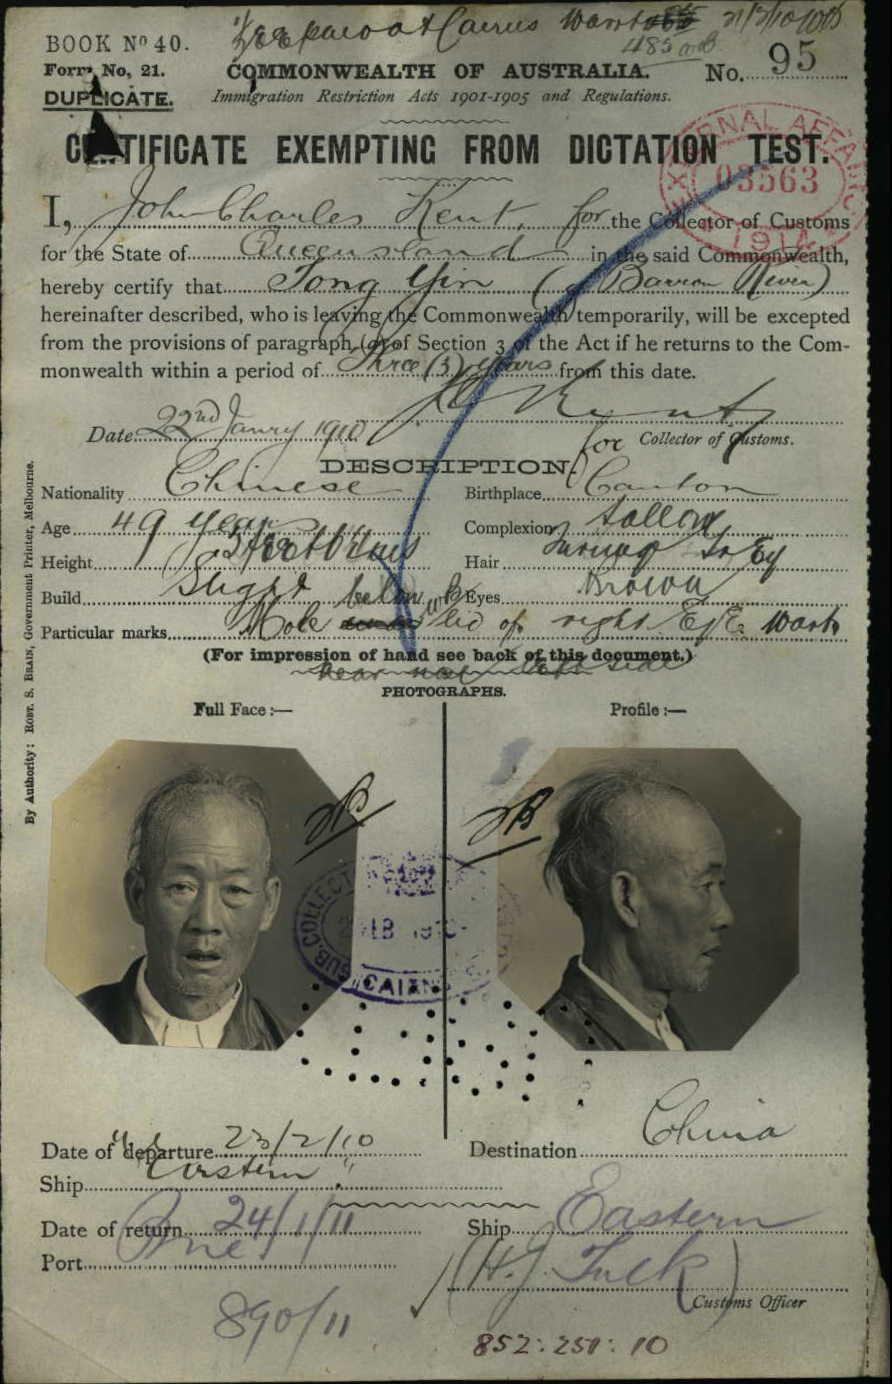 BOOK Nº 40.
Form No, 21.
DUPLICATE.
COMMONWEALTH OF AUSTRALIA.
No. 95
Immigration Restriction Acts 1901-1905 and Regulations.
CERTIFICATE EXEMPTING FROM DICTATION TEST.
EXTERNAL AFFAIRS
03563
1914
I, John Charles Kent, for the Collector of Customs
for the State of Queensland in the said Commonwealth,
hereby certify that Tong Yin (of Barron River)
hereinafter described, who is leaving the Commonwealth temporarily, will be excepted
from the provisions of paragraph (a) of Section 3 of the Act if he returns to the Com-
monwealth within a period of Three (3) years from this date.
Date 22nd Janry 1910
Kent
for Collector of Customs.
DESCRIPTION.
Nationality Chinese
Birthplace Canton
Age 49 years
Complexion Sallow
Height
Hair Turning Grey
Build Slight
Eyes Brown
Particular marks Mole below lid of right Eye. Wart
(For impression of hand see back of this document.)
near left side
PHOTOGRAPHS.
Full Face :—
Profile :—
By Authority: ROBT. S. BRAIN, Government Printer, Melbourne.
SUB. COLLECT
CAIRNS
Date of departure 23/2/10
Destination China
Ship "Eastern"
Date of return 24/1/11
Ship Eastern
Port Bne
(H.J. Tuck)
Customs Officer
890/11
852:251:10